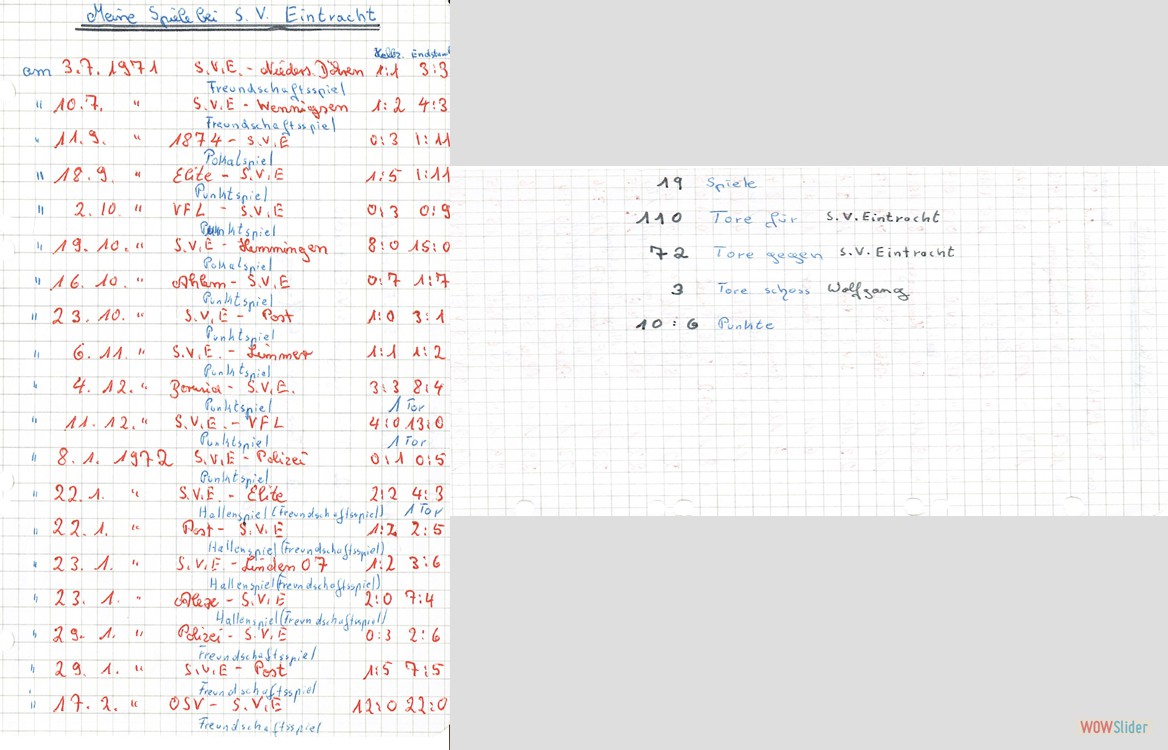 Meine Spiele bei S. V. Eintracht
Halbz. Endstand
am 3.7. 1971 S.V.E. - Nieders. Döhren 1:1 3:3
Freundschaftsspiel
" 10.7. " S.V.E - Wennigsen 1:2 4:3
Freundschaftsspiel
" 11.9. " 1874 - S.V.E 0:3 1:11
Pokalspiel
" 18.9. " Elite - S.V.E 1:5 1:11
Punktspiel
" 2.10. " VFL - S.V.E 0:3 0:9
Punktspiel
" 19.10. " S.V.E - Hemmingen 8:0 15:0
Pokalspiel
" 16.10. " Ahlem - S.V.E 0:7 1:7
Punktspiel
" 23.10. " S.V.E - Post 1:0 3:1
Punktspiel
" 6.11. " S.V.E. - Limmer 1:1 1:2
Punktspiel
" 4.12. " Borussia - S.V.E. 3:3 8:4
Punktspiel 1 Tor
" 11.12. " S.V.E. - VFL 4:0 13:0
Punktspiel 1 Tor
" 8.1. 1972 S.V.E - Polizei 0:1 0:5
Punktspiel
" 22.1. " S.V.E. - Elite 2:2 4:3
Hallenspiel (Freundschaftsspiel) 1 Tor
" 22.1. " Post - S.V.E 1:2 2:5
Hallenspiel (Freundschaftsspiel)
" 23.1. " S.V.E. - Linden 07 1:2 3:6
Hallenspiel (Freundschaftsspiel)
" 23.1. " - S.V.E 2:0 7:4
Hallenspiel (Freundschaftsspiel)
" 29.1. " Polizei - S.V.E 0:3 2:6
Freundschaftsspiel
" 29.1. " S.V.E - Post 1:5 7:5
Freundschaftsspiel
" 17.2. " OSV - S.V.E 12:0 22:0
Freundschaftsspiel
19 Spiele
110 Tore für S.V.Eintracht
72 Tore gegen S.V.Eintracht
3 Tore schoss Wolfgang
10 : 6 Punkte
WOWSlider